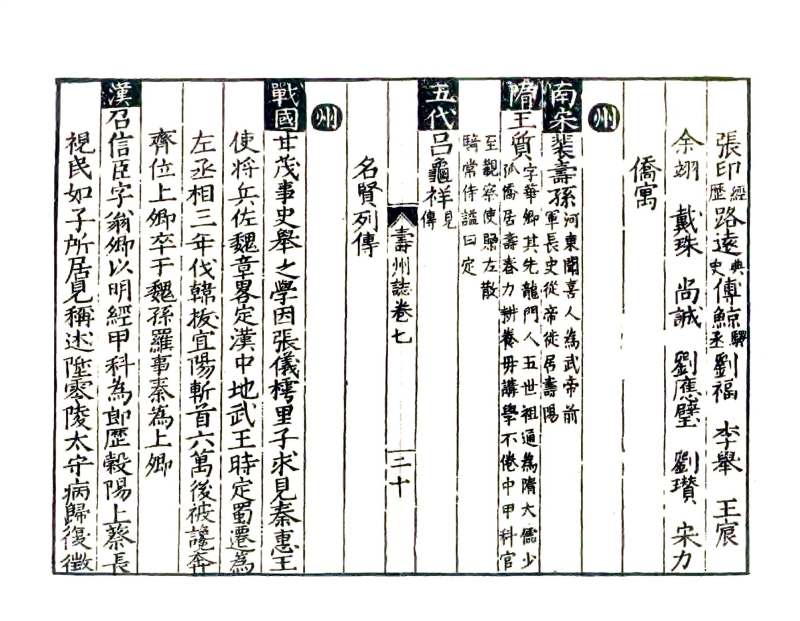 張印經歷路逵典史傅鯨驛丞劉福 李舉 王宸
余翊 戴珠 尚誠 劉應璧 劉瓚 宋力
僑寓
州
南宋裴壽孫河東聞喜人為武帝前
軍長史從帝徙居壽陽
隋王質字華卿其先龍門人五世祖通為隋大儒少
孤僑居壽春力耕養母講學不倦中甲科官
至觀察使贈左散
騎常侍諡曰定
五代呂龜祥見
傳
壽州誌卷七
三十
名賢列傳
州
戰國甘茂事史舉之學因張儀樗里子求見秦惠王
使將兵佐魏章畧定漢中地武王時定蜀遷為
左丞相三年伐韓拔宜陽斬首六萬後被讒奔
齊位上卿卒于魏孫羅事秦為上卿
漢召信臣字翁卿以明經甲科為郎歷穀陽上蔡長
視民如子所居見稱述陞零陵太守病歸復徵